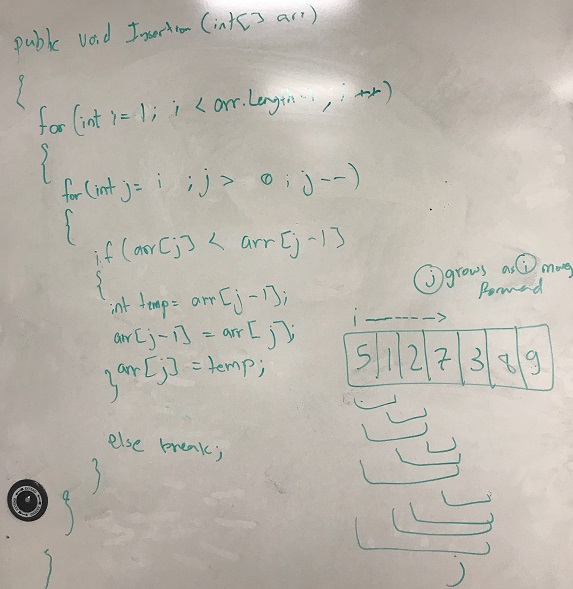 public void Insertion (int[] arr)
{
for (int i = 1; i < arr.Length - 1; i++)
{
for (int j = i ; j > 0 ; j--)
{
if (arr[j] < arr[j-1]
{
int temp = arr[j-1];
arr[j-1] = arr[j];
arr[j] = temp;
}
else break;
}
}
}
j grows as i moves
forward
i ------>
5 1 2 7 3 8 9
j